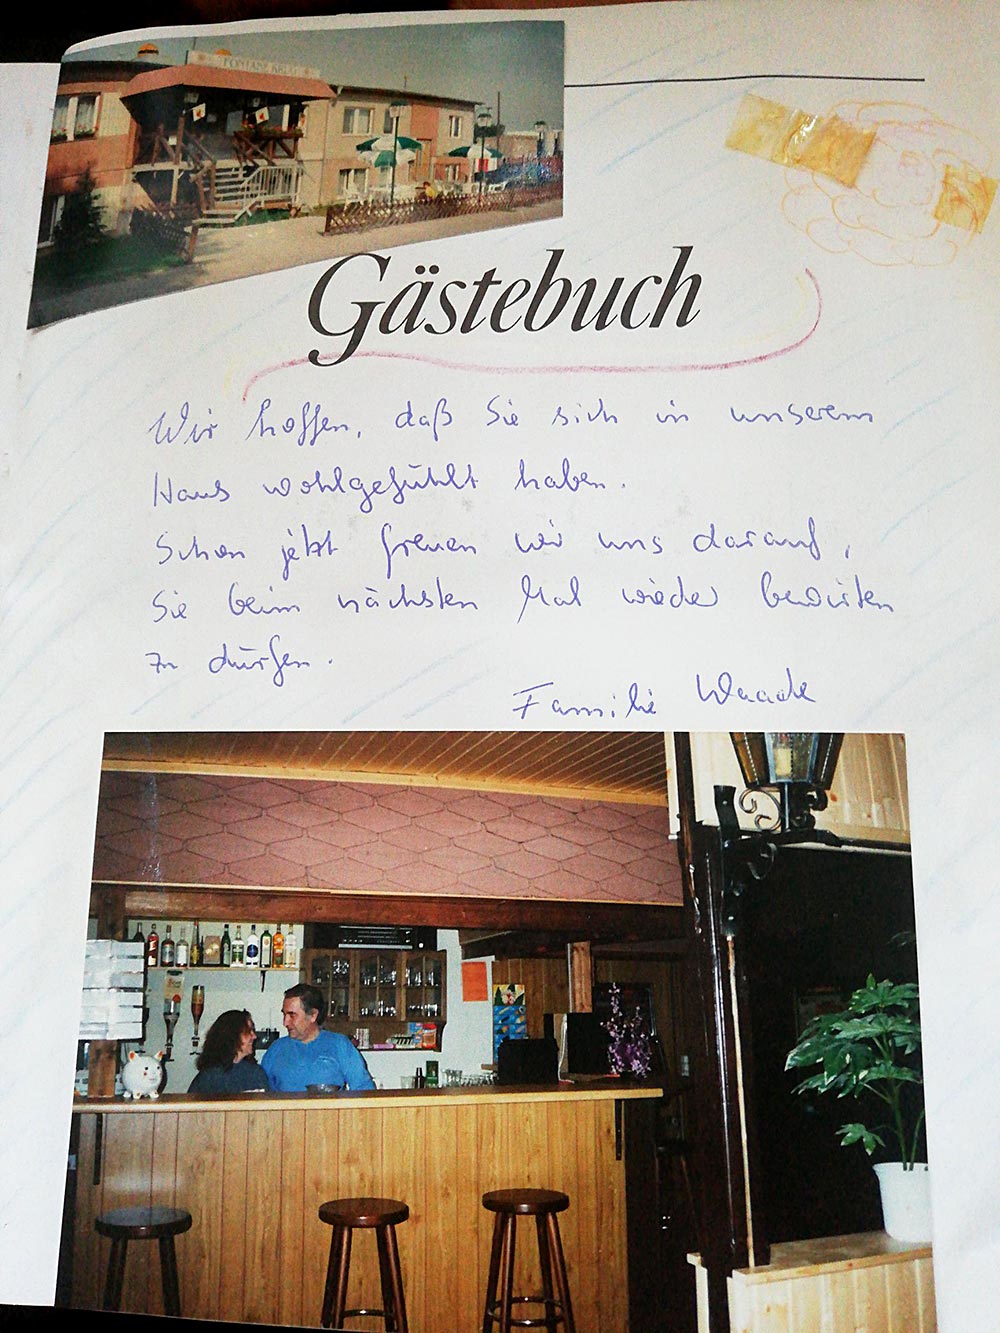 FONTANE KRUG
Gästebuch
Wir hoffen, daß Sie sich in unserem
Haus wohlgefühlt haben.
Schon jetzt freuen wir uns darauf,
Sie beim nächsten Mal wieder bewirten
zu dürfen.
Familie Waack